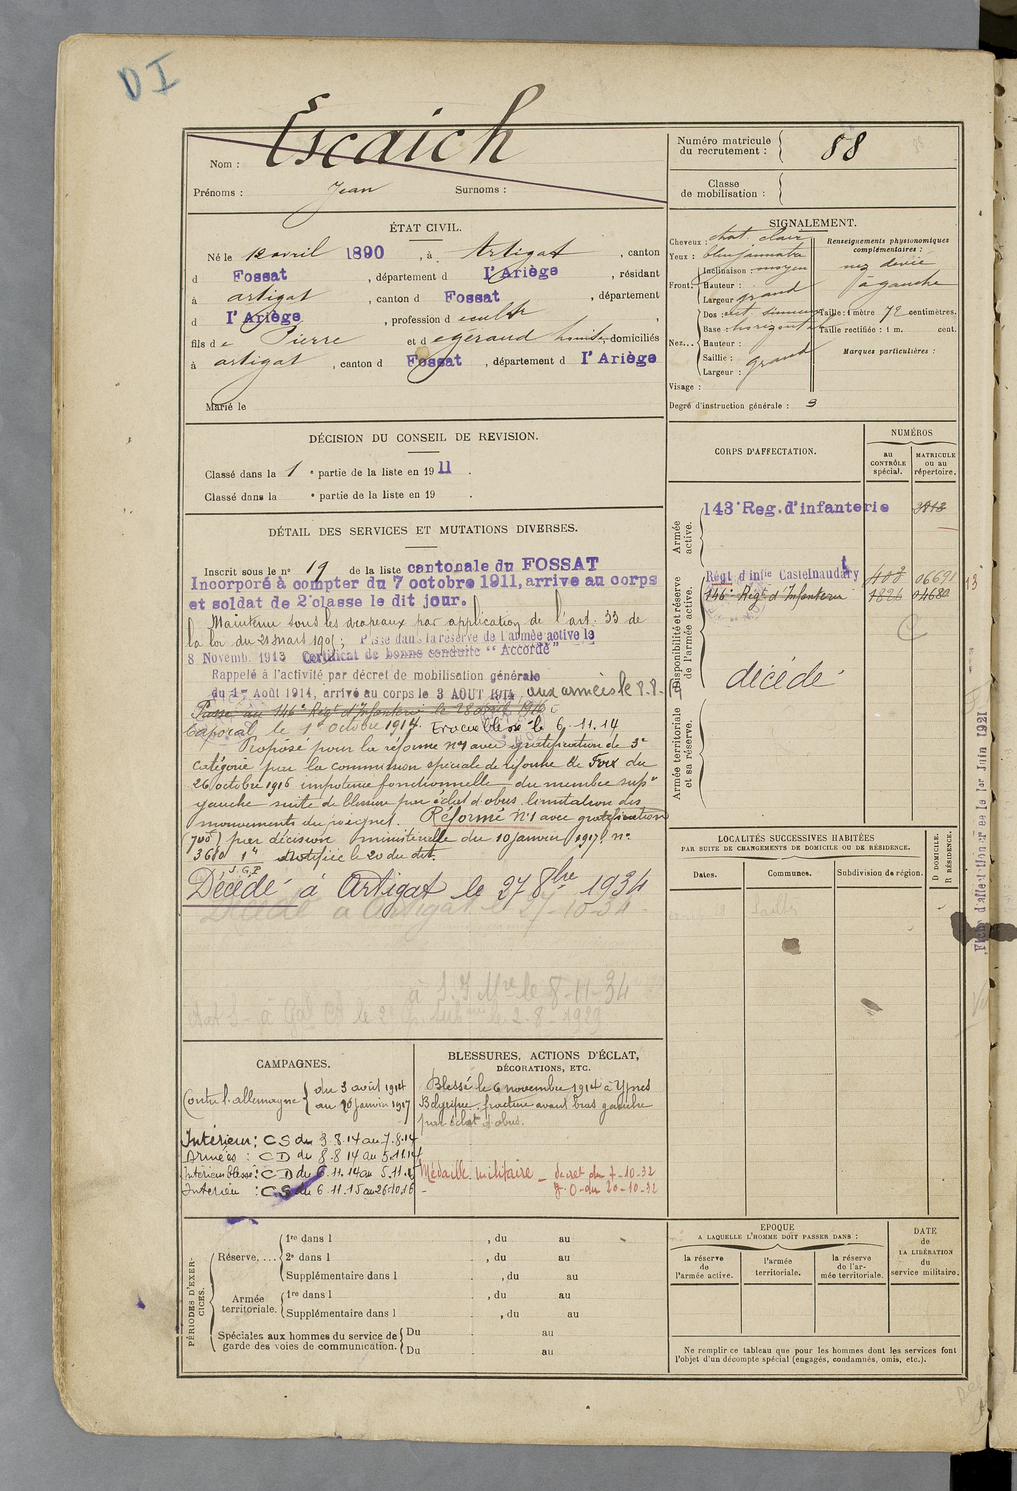 DI
Nom : Escaich
Prénoms : Jean Surnoms :
Numéro matricule du recrutement : 88
Classe de mobilisation :
ÉTAT CIVIL.
Né le 12 avril 1890 , à Artigat , canton
d Fossat , département d l'Ariège , résidant
à artigat , canton d Fossat , département
d l'Ariège , profession d
fils de Pierre et d domiciliés
à artigat , canton d Fossat , département d l'Ariège
Marié le
SIGNALEMENT.
Cheveux : chat. clair
Yeux : bleu jaunâtre
Front : Inclinaison : moyen
Hauteur :
Largeur grand
Nez... Dos : rect. sinueux
Base : horizontal
Hauteur :
Saillie : grand
Largeur :
Visage :
Degré d'instruction générale : 3
Renseignements physionomiques complémentaires :
nez dévié
à gauche
Taille : 1 mètre 72 centimètres.
Taille rectifiée : 1 m. cent.
Marques particulières :
DÉCISION DU CONSEIL DE REVISION.
Classé dans la 1 e partie de la liste en 1911 .
Classé dans la e partie de la liste en 19 .
DÉTAIL DES SERVICES ET MUTATIONS DIVERSES.
Inscrit sous le n° 19 de la liste cantonale du FOSSAT
Incorporé à compter du 7 octobre 1911, arrive au corps
et soldat de 2e classe le dit jour.
Maintenu sous les drapeaux par application de l'art. 33 de
la loi du 21 mars 1905 ; Passe dans la reserve de l'armée active le
8 Novemb. 1913 Certificat de bonne conduite "Accordé"
Rappelé à l'activité par décret de mobilisation générale
du 1er Août 1914, arrivé au corps le 3 AOUT 1914 aux armées le 8-8-14
Passé au 146e Régt d'Infanterie le 28 1916
Caporal le 1er octobre 1914. Evacué blessé le 6.11.14
Proposé pour la réforme n°1 avec gratification de 3e
catégorie par la commission spéciale de réforme de Foix du
26 octobre 1916 impotence fonctionnelle du membre supr
gauche suite de blessure par éclat d'obus. limitation des
mouvements du poignet. Réformé N°1 avec gratification
par décision ministérielle du 10 janvier 1917 n°
3610 1er notifiée le 20 du dit.
J.G.P
Décédé à Artigat le 27 8bre 1934
Décédé à Artigat le 27-10-34
CORPS D'AFFECTATION.
NUMÉROS
au CONTRÔLE spécial.
MATRICULE ou au répertoire.
Armée active.
143e Reg. d'infanterie
Disponibilité et réserve de l'armée active.
Régt d'infie Castelnaudary 06691
146e Régt d'Infanterie
décédé
Armée territoriale et sa réserve.
Fiche d'affectation créée le 1er Juin 1921
LOCALITÉS SUCCESSIVES HABITÉES
PAR SUITE DE CHANGEMENTS DE DOMICILE OU DE RÉSIDENCE.
Dates. Communes. Subdivision de région.
D DOMICILE. R RÉSIDENCE.
CAMPAGNES.
Contre l'allemagne du 3 août 1914
au 20 janvier 1917
Intérieur : CS du 3 8.14 au 7.8.14
Armées : CD du 8 8 14 au 5.11.14
Intérieur blessé : CD du 6.11.14 au 5.11.15
Intérieur : CS du 6.11.15 au 26.10.16
BLESSURES, ACTIONS D'ÉCLAT,
DÉCORATIONS, ETC.
Blessé le 6 novembre 1914 à Ypres
Belgique. fracture avant bras gauche
par éclat d'obus.
Médaille militaire - décret du 7-10-32
J.O. du 20-10-32
PÉRIODES D'EXERCICES.
Réserve.... 1re dans l , du au
2e dans l , du au
Supplémentaire dans l , du au
Armée territoriale. 1re dans l , du au
Supplémentaire dans l , du au
Spéciales aux hommes du service de garde des voies de communication. Du au
Du au
EPOQUE
A LAQUELLE L'HOMME DOIT PASSER DANS :
la réserve de l'armée active.
l'armée territoriale.
la réserve de l'armée territoriale.
DATE de LA LIBÉRATION du service militaire.
Ne remplir ce tableau que pour les hommes dont les services font
l'objet d'un décompte spécial (engagés, condamnés, omis, etc.).